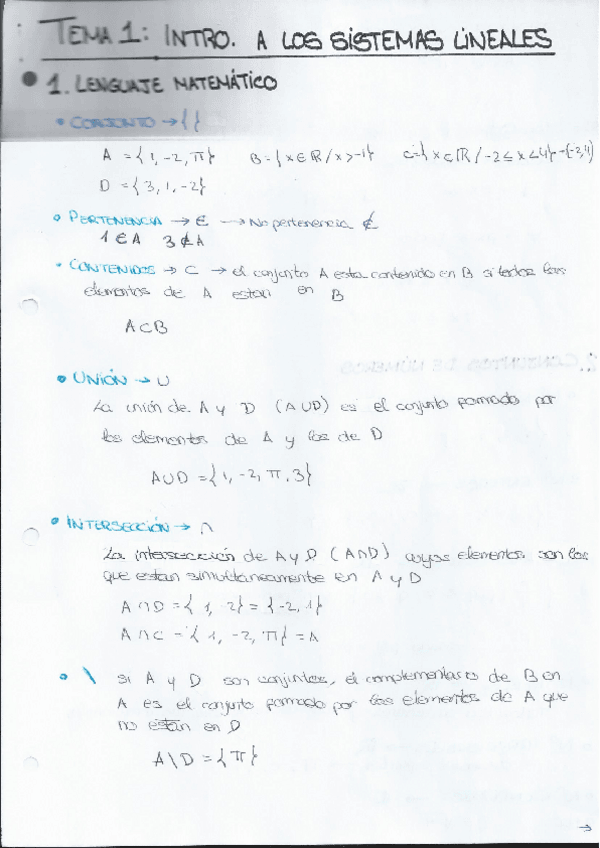 TEMA 1: INTRO. A LOS SISTEMAS LINEALES
1. LENGUAJE MATEMÁTICO
• CONJUNTO → { }
A = {1, -2, π} B = {x ∈ ℝ / x > -1} C = {x ∈ ℝ / -2 ≤ x < 4} → [-2,4)
D = {3, 1, -2}
• PERTENENCIA → ∈ → No pertenencia ∉
1 ∈ A 3 ∉ A
• CONTENIDOS → ⊂ → el conjunto A esta contenido en B si todos los
elementos de A estan en B
A ⊂ B
• UNIÓN → ∪
La unión de A y D (A ∪ D) es el conjunto formado por
los elementos de A y los de D
A ∪ D = {1, -2, π, 3}
• INTERSECCIÓN → ∩
La intersección de A y D (A ∩ D) cuyos elementos son los
que estan simultaneamente en A y D
A ∩ D = {1, -2} = {-2, 1}
A ∩ C = {1, -2, π} = A
• \ Si A y D son conjuntos, el complementario de B en
A es el conjunto formado por los elementos de A que
no están en D
A \ D = {π}
→